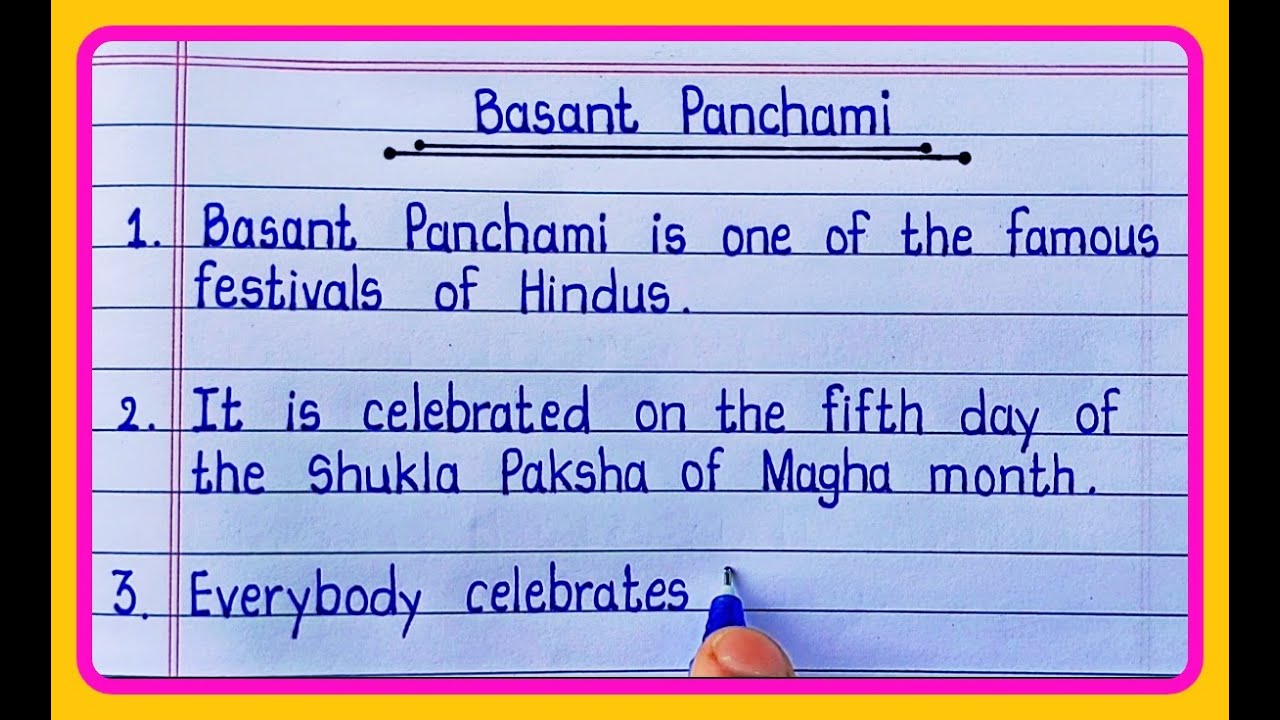 Basant Panchami
1. Basant Panchami is one of the famous
festivals of Hindus.
2. It is celebrated on the fifth day of
the Shukla Paksha of Magha month.
3. Everybody celebrates